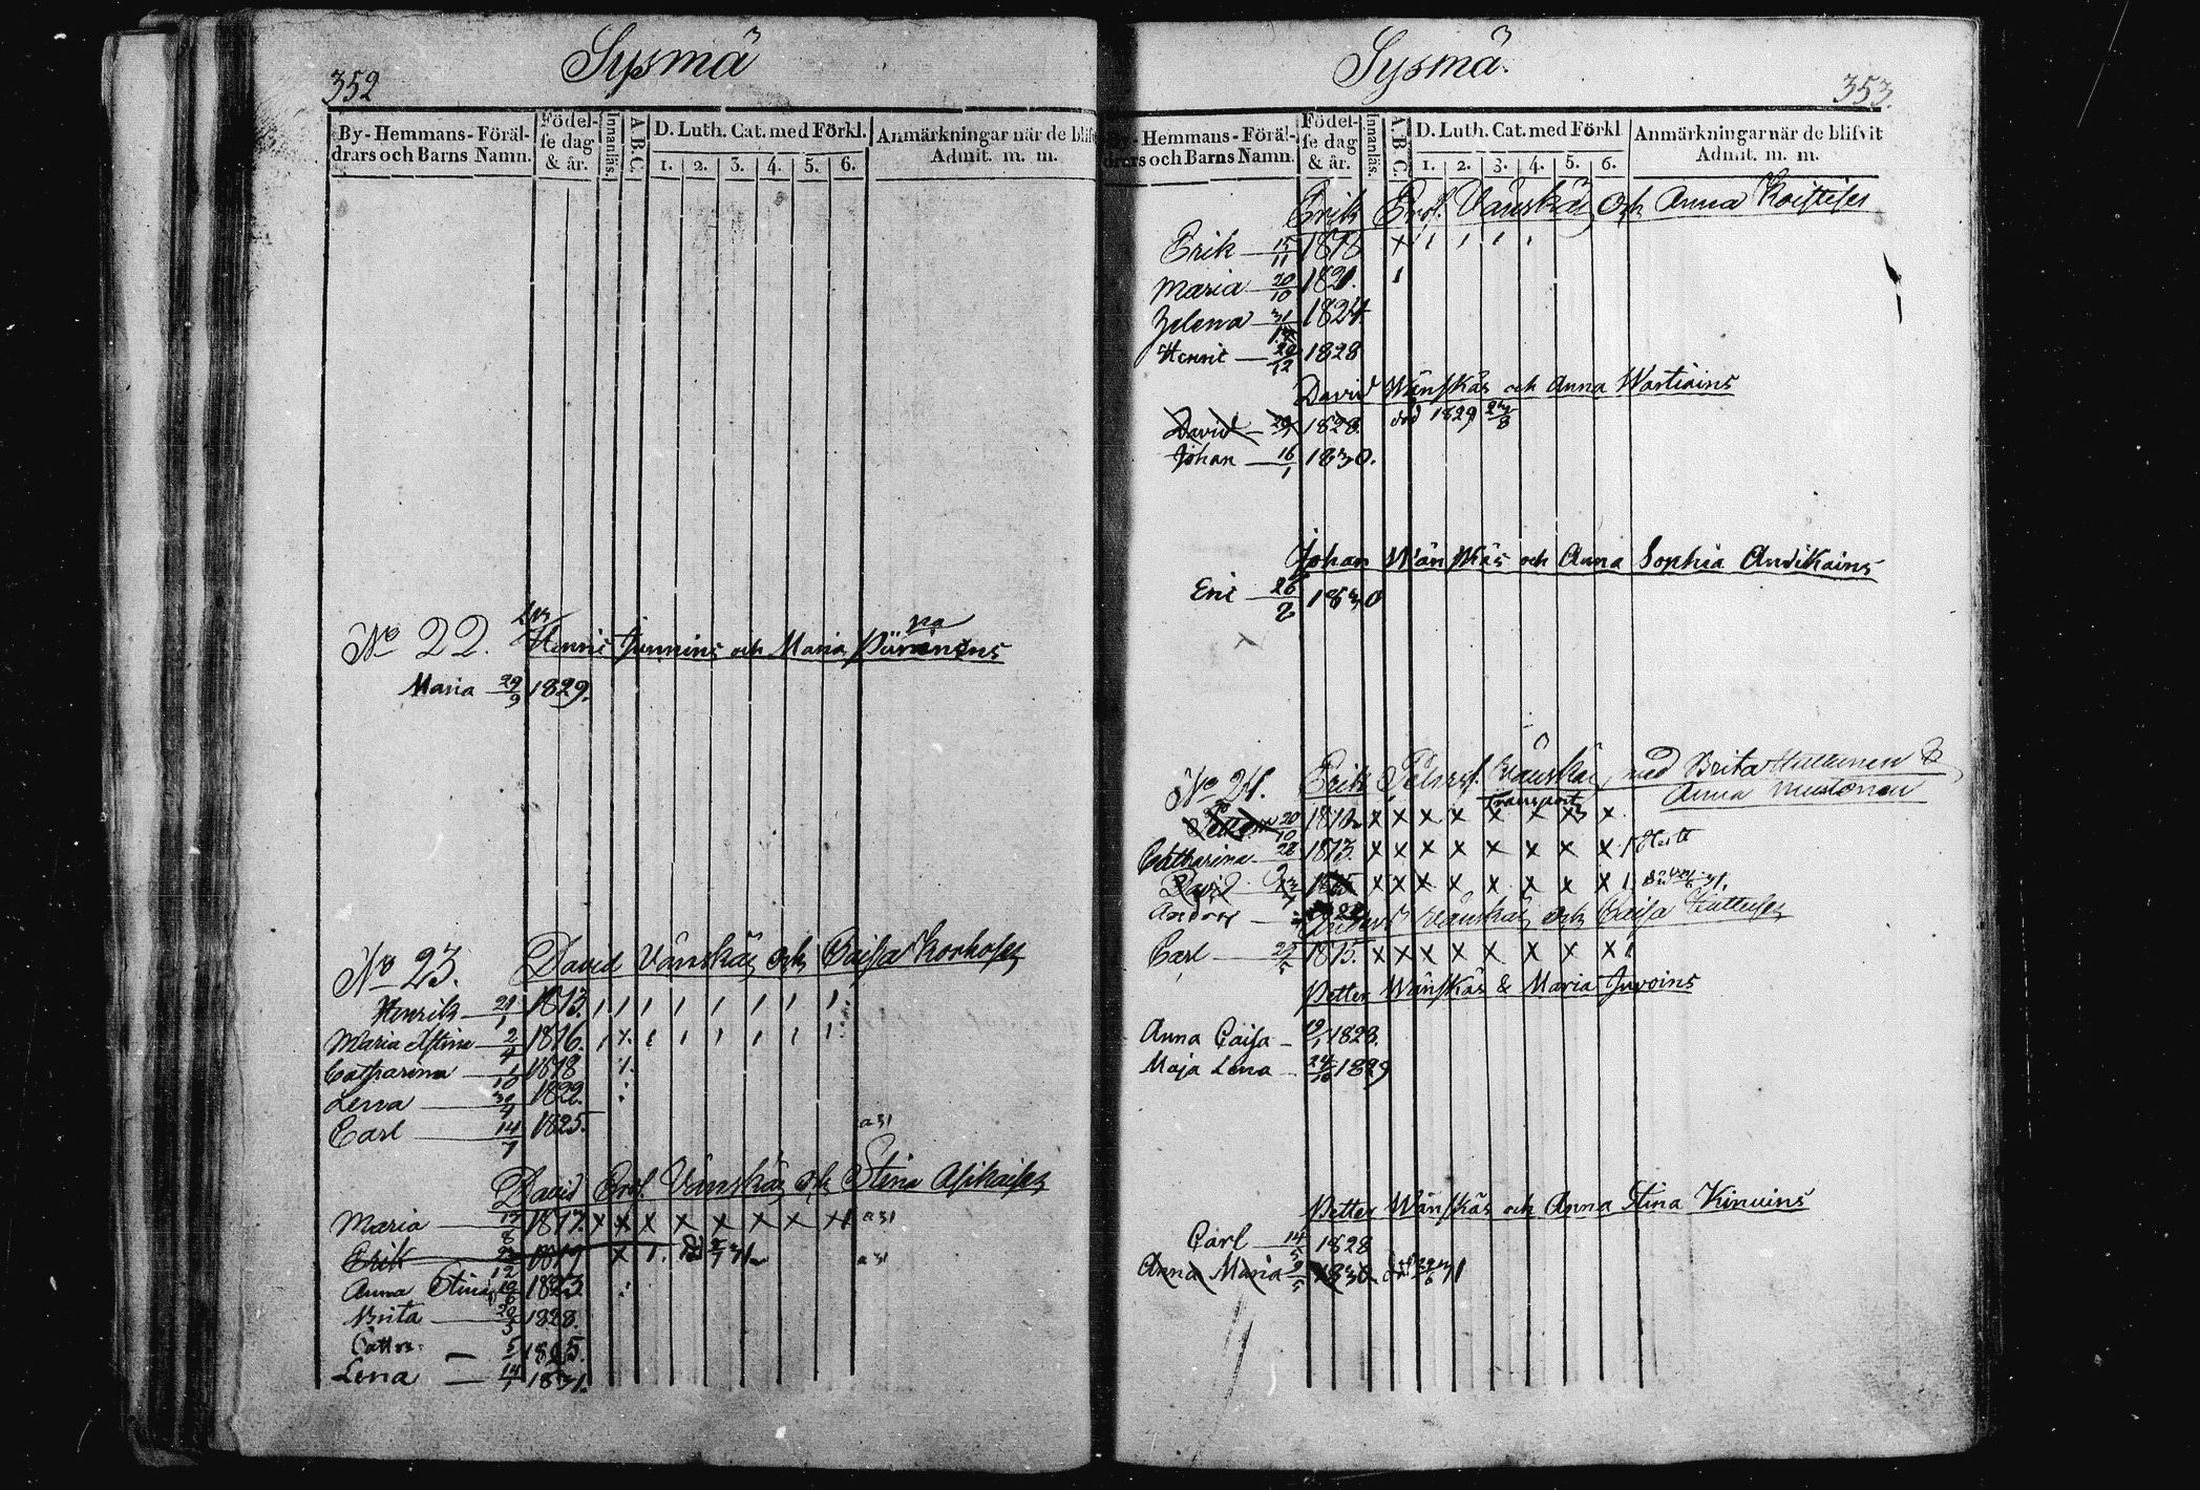 352
Sysmä
By-Hemmans-Föräl-
drars och Barns Namn.
Födel-
se dag
& år.
Innanläs.
A.B.C.
D. Luth. Cat. med Förkl.
1. 2. 3. 4. 5. 6.
Anmärkningar när de blifv
Admit. m. m.
No 22. Henric Junnins och Maria
Maria 29/9 1829.
No 23. David Vänskäs och Caisa Korhoses
Henrik 21/1 1813. / / / / / / / /
Maria Stina 2/4 1816.
Catharina 1/10 1818
Lena 30/4 1822.
Carl 14/7 1825. a 31
David Erss. Vänskäs och Stina Asikaises
Maria 17/8 1817. x x x x x x x x a 31
Erik 1819 x 1. a 31
Anna Stina 1823.
Brita 1828.
Cathr. 5
Lena 14/7 1831.
Sysmä.
353.
By-Hemmans-Föräl-
drars och Barns Namn.
Födel-
se dag
& år.
Innanläs.
A.B.C.
D. Luth. Cat. med Förkl
1. 2. 3. 4. 5. 6.
Anmärkningar när de blifvit
Admit. m. m.
Erik Erss. Vänskäs Och Anna Koistises
Erik 15/11 1818 x 1 1 1 1
Maria 20/10 1821. 1
Helena 31/12 1824.
Henric 20/12 1828
David Wänskäs och Anna Wartiains
David 1828. död 1829 24/8
Johan 16/1 1830.
Johan Wänskäs och Anna Sophia Andikains
Eric 26/2 1830
No 24. Erik Peterss. Vänskä, med Brita Huttunen &
Anna Mustonen
Transport
20/10 x x x x x x x
Catharina 28 1813. x x x x x x x 1
David x x x x x x x 1
Anders
Anders Vänskäs och Caisa Huttuses
Carl 1815. x x x x x x x 1
Petter Wänskäs & Maria Juvoins
Anna Caisa 19/1 1828.
Maja Lena 24/10 1829
Petter Wänskäs och Anna Stina Kinuins
Carl 14/5 1828
Anna Maria 1830